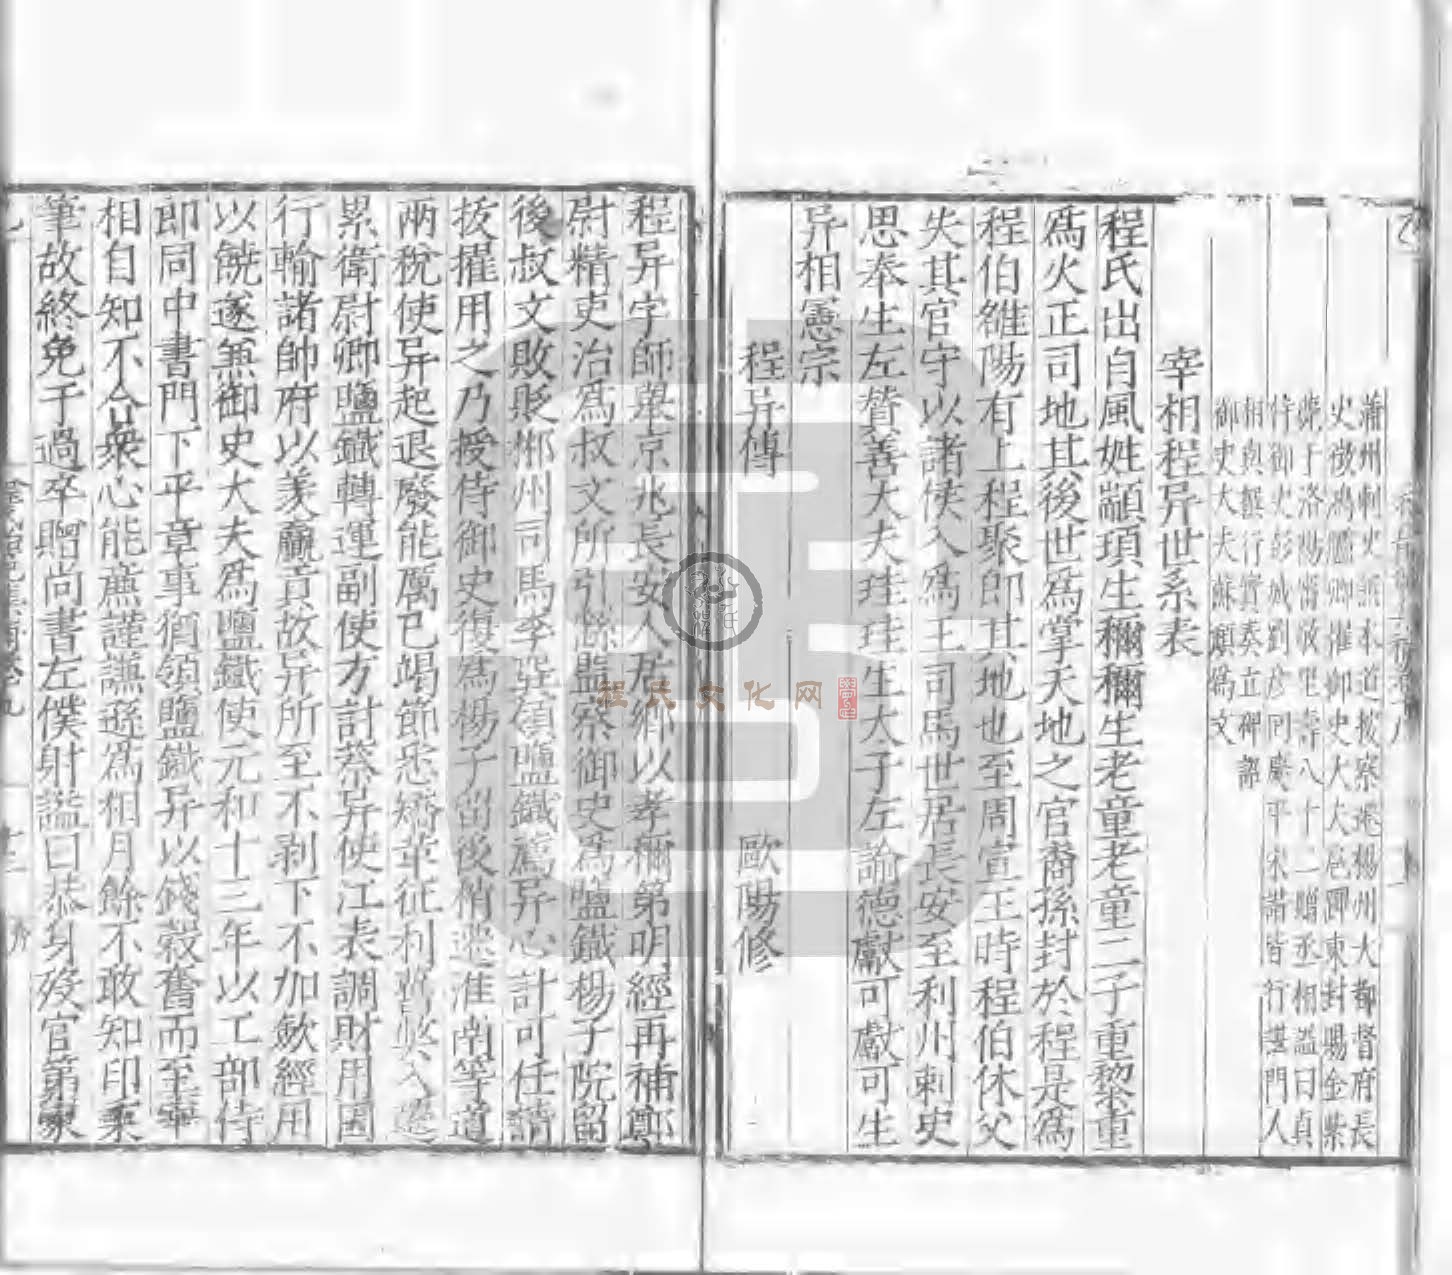 蒲州刺史河東道按察進揚州大都督府長
史徵鴻臚卿御史大夫邑郡東封賜金紫
薨于洛陽壽八十二贈丞相謚曰貞
侍御史彭城劉同慶平宋諧皆行諶門人
相與撰行實奏立碑詔
御史大夫蘇頲爲文
宰相程异世系表
程氏出自風姓顓頊生稱稱生老童老童二子重黎重
爲火正司地其後世爲掌天地之官裔孫封於程是爲
程伯雒陽有上程聚即其地也至周宣王時程伯休父
失其官守以諸侯入爲王司馬世居長安至利州刺史
思奉生左贊善大夫珪珪生太子左諭德獻可獻可生
异相憲宗
程异傳 歐陽修
程异字師舉京兆長安人居鄉以孝稱第明經再補鄭
尉精吏治爲叔文所引擢監察御史爲鹽鐵楊子院留
後叔文敗貶郴州司馬李巽領鹽鐵薦异心計可任請
拔擢用之乃授侍御史復爲楊子留後稍遷淮南等道
兩稅使异起退廢能厲己竭節悉矯革征利舊弊入遷
累衛尉卿鹽鐵轉運副使方討蔡异使江表調財用因
行輸諸帥府以羨贏貢故异所至不剥下不加斂經用
以饒遂兼御史大夫爲鹽鐵使元和十三年以工部侍
即同中書門下平章事猶領鹽鐵异以錢穀舊而至宰
相自知不合衆心能廉謹謙遜爲相月餘不敢知印秉
筆故終免于過卒贈尚書左僕射謚曰恭身歿官第家
程氏文化网